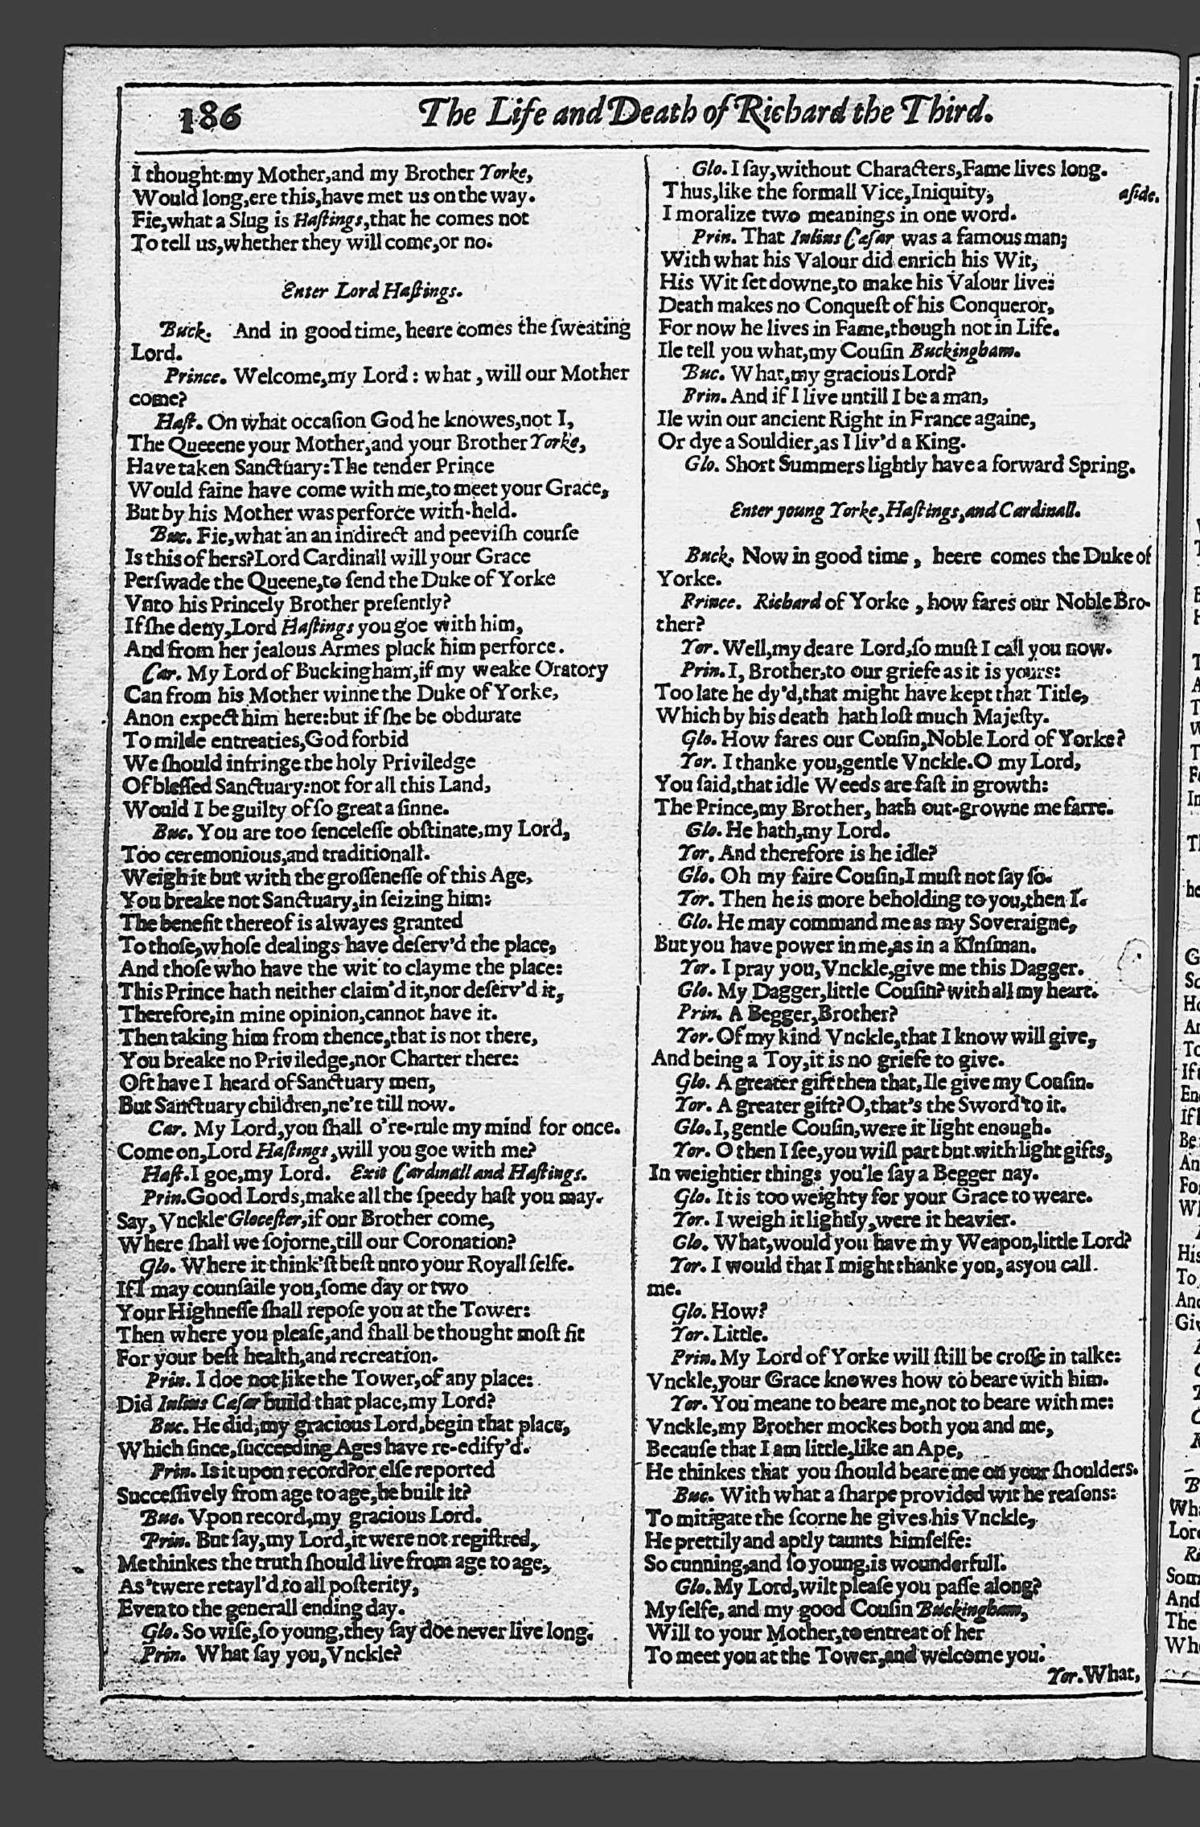 186
The Life and Death of Richard the Third.
I thought my Mother,and my Brother Yorke,
Would long,ere this,have met us on the way.
Fie,what a Slug is Haſtings,that he comes not
To tell us,whether they will come,or no.
Enter Lord Haſtings.
Buck. And in good time, heere comes the ſweating
Lord.
Prince. Welcome,my Lord : what , will our Mother
come?
Haſt. On what occaſion God he knowes,not I,
The Queeene your Mother,and your Brother Yorke,
Have taken Sanctuary:The tender Prince
Would faine have come with me,to meet your Grace,
But by his Mother was perforce with-held.
Buc. Fie,what an an indirect and peeviſh courſe
Is this of hers?Lord Cardinall will your Grace
Perſwade the Queene,to ſend the Duke of Yorke
Vnto his Princely Brother preſently?
If ſhe deny,Lord Haſtings you goe with him,
And from her jealous Armes pluck him perforce.
Car. My Lord of Buckingham,if my weake Oratory
Can from his Mother winne the Duke of Yorke,
Anon expect him here:but if ſhe be obdurate
To milde entreaties,God forbid
We ſhould infringe the holy Priviledge
Of bleſſed Sanctuary:not for all this Land,
Would I be guilty of ſo great a ſinne.
Buc. You are too ſenceleſſe obſtinate,my Lord,
Too ceremonious,and traditionall.
Weigh it but with the groſſeneſſe of this Age,
You breake not Sanctuary,in ſeizing him:
The benefit thereof is alwayes granted
To thoſe,whoſe dealings have deſerv'd the place,
And thoſe who have the wit to clayme the place:
This Prince hath neither claim'd it,nor deſerv'd it,
Therefore,in mine opinion,cannot have it.
Then taking him from thence,that is not there,
You breake no Priviledge,nor Charter there:
Oft have I heard of Sanctuary men,
But Sanctuary children,ne're till now.
Car. My Lord,you ſhall o're-rule my mind for once.
Come on,Lord Haſtings,will you goe with me?
Haſt.I goe,my Lord. Exit Cardinall and Haſtings.
Prin.Good Lords,make all the ſpeedy haſt you may.
Say, Vnckle Gloceſter,if our Brother come,
Where ſhall we ſojorne,till our Coronation?
Glo. Where it think'ſt beſt unto your Royall ſelfe.
If I may counſaile you,ſome day or two
Your Highneſſe ſhall repoſe you at the Tower:
Then where you pleaſe,and ſhall be thought moſt fit
For your beſt health,and recreation.
Prin. I doe not like the Tower,of any place:
Did Iulius Cæſar build that place,my Lord?
Buc. He did,my gracious Lord,begin that place,
Which ſince,ſucceeding Ages have re-edify'd.
Prin. Is it upon record?or elſe reported
Succeſſively from age to age,he built it?
Buc. Vpon record,my gracious Lord.
Prin. But ſay,my Lord,it were not regiſtred,
Methinkes the truth ſhould live from age to age,
As 'twere retayl'd to all poſterity,
Even to the generall ending day.
Glo. So wiſe,ſo young,they ſay doe never live long.
Prin. What ſay you,Vnckle?
Glo. I ſay,without Characters,Fame lives long.
Thus,like the formall Vice,Iniquity, aſide.
I moralize two meanings in one word.
Prin. That Iulius Cæſar was a famous man;
With what his Valour did enrich his Wit,
His Wit ſet downe,to make his Valour live:
Death makes no Conqueſt of his Conqueror,
For now he lives in Fame,though not in Life.
Ile tell you what,my Couſin Buckingham.
Buc. What,my gracious Lord?
Prin. And if I live untill I be a man,
Ile win our ancient Right in France againe,
Or dye a Souldier,as I liv'd a King.
Glo. Short Summers lightly have a forward Spring.
Enter young Yorke,Haſtings,and Cardinall.
Buck. Now in good time , heere comes the Duke of
Yorke.
Prince. Richard of Yorke , how fares our Noble Bro-
ther?
Yor. Well,my deare Lord,ſo muſt I call you now.
Prin. I, Brother,to our griefe as it is yours:
Too late he dy'd,that might have kept that Title,
Which by his death hath loſt much Majeſty.
Glo. How fares our Couſin,Noble Lord of Yorke?
Yor. I thanke you,gentle Vnckle.O my Lord,
You ſaid,that idle Weeds are faſt in growth:
The Prince,my Brother, hath out-growne me farre.
Glo. He hath,my Lord.
Yor. And therefore is he idle?
Glo. Oh my faire Couſin,I muſt not ſay ſo.
Yor. Then he is more beholding to you,then I.
Glo. He may command me as my Soveraigne,
But you have power in me,as in a Kinſman.
Yor. I pray you,Vnckle,give me this Dagger.
Glo. My Dagger,little Couſin?with all my heart.
Prin. A Begger,Brother?
Yor. Of my kind Vnckle,that I know will give,
And being a Toy,it is no griefe to give.
Glo. A greater gift then that,Ile give my Couſin.
Yor. A greater gift?O,that's the Sword to it.
Glo. I, gentle Couſin,were it light enough.
Yor. O then I ſee,you will part but with light gifts,
In weightier things you'le ſay a Begger nay.
Glo. It is too weighty for your Grace to weare.
Yor. I weigh it lightly,were it heavier.
Glo. What,would you have my Weapon,little Lord?
Yor. I would that I might thanke you, as you call
me.
Glo. How?
Yor. Little.
Prin. My Lord of Yorke will ſtill be croſſe in talke:
Vnckle,your Grace knowes how to beare with him.
Yor. You meane to beare me,not to beare with me:
Vnckle,my Brother mockes both you and me,
Becauſe that I am little,like an Ape,
He thinkes that you ſhould beare me on your ſhoulders.
Buc. With what a ſharpe provided wit he reaſons:
To mitigate the ſcorne he gives his Vnckle,
He prettily and aptly taunts himſelfe:
So cunning,and ſo young,is wounderfull.
Glo. My Lord,wilt pleaſe you paſſe along?
My ſelfe, and my good Couſin Buckingham,
Will to your Mother,to entreat of her
To meet you at the Tower,and welcome you.
Yor. What,